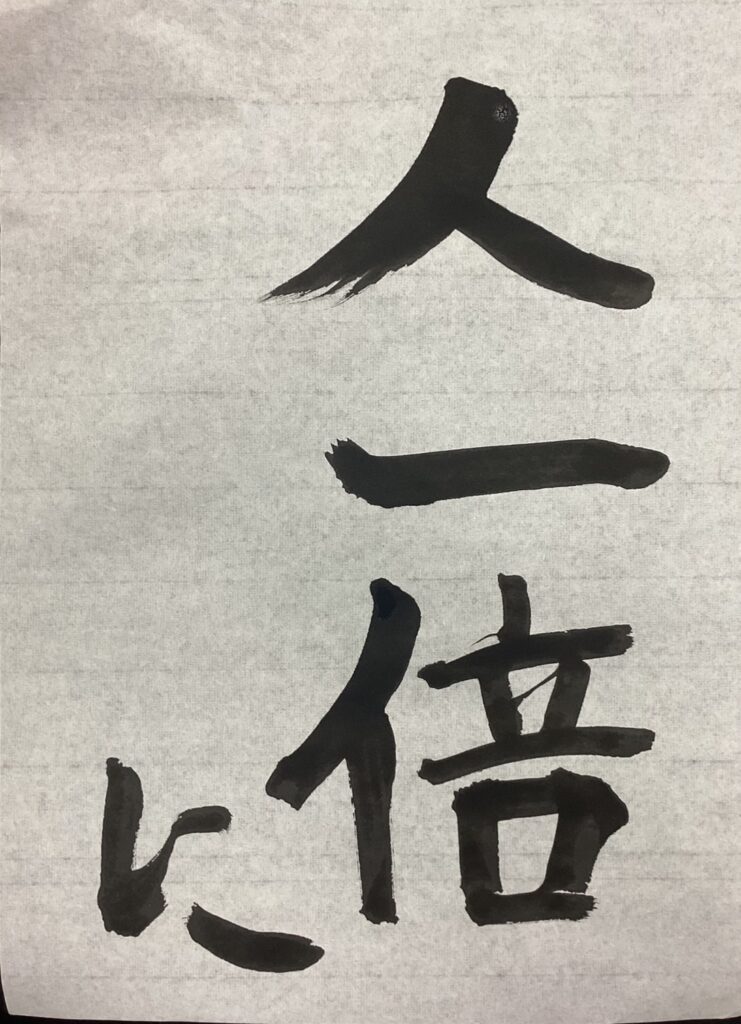 人一倍
に